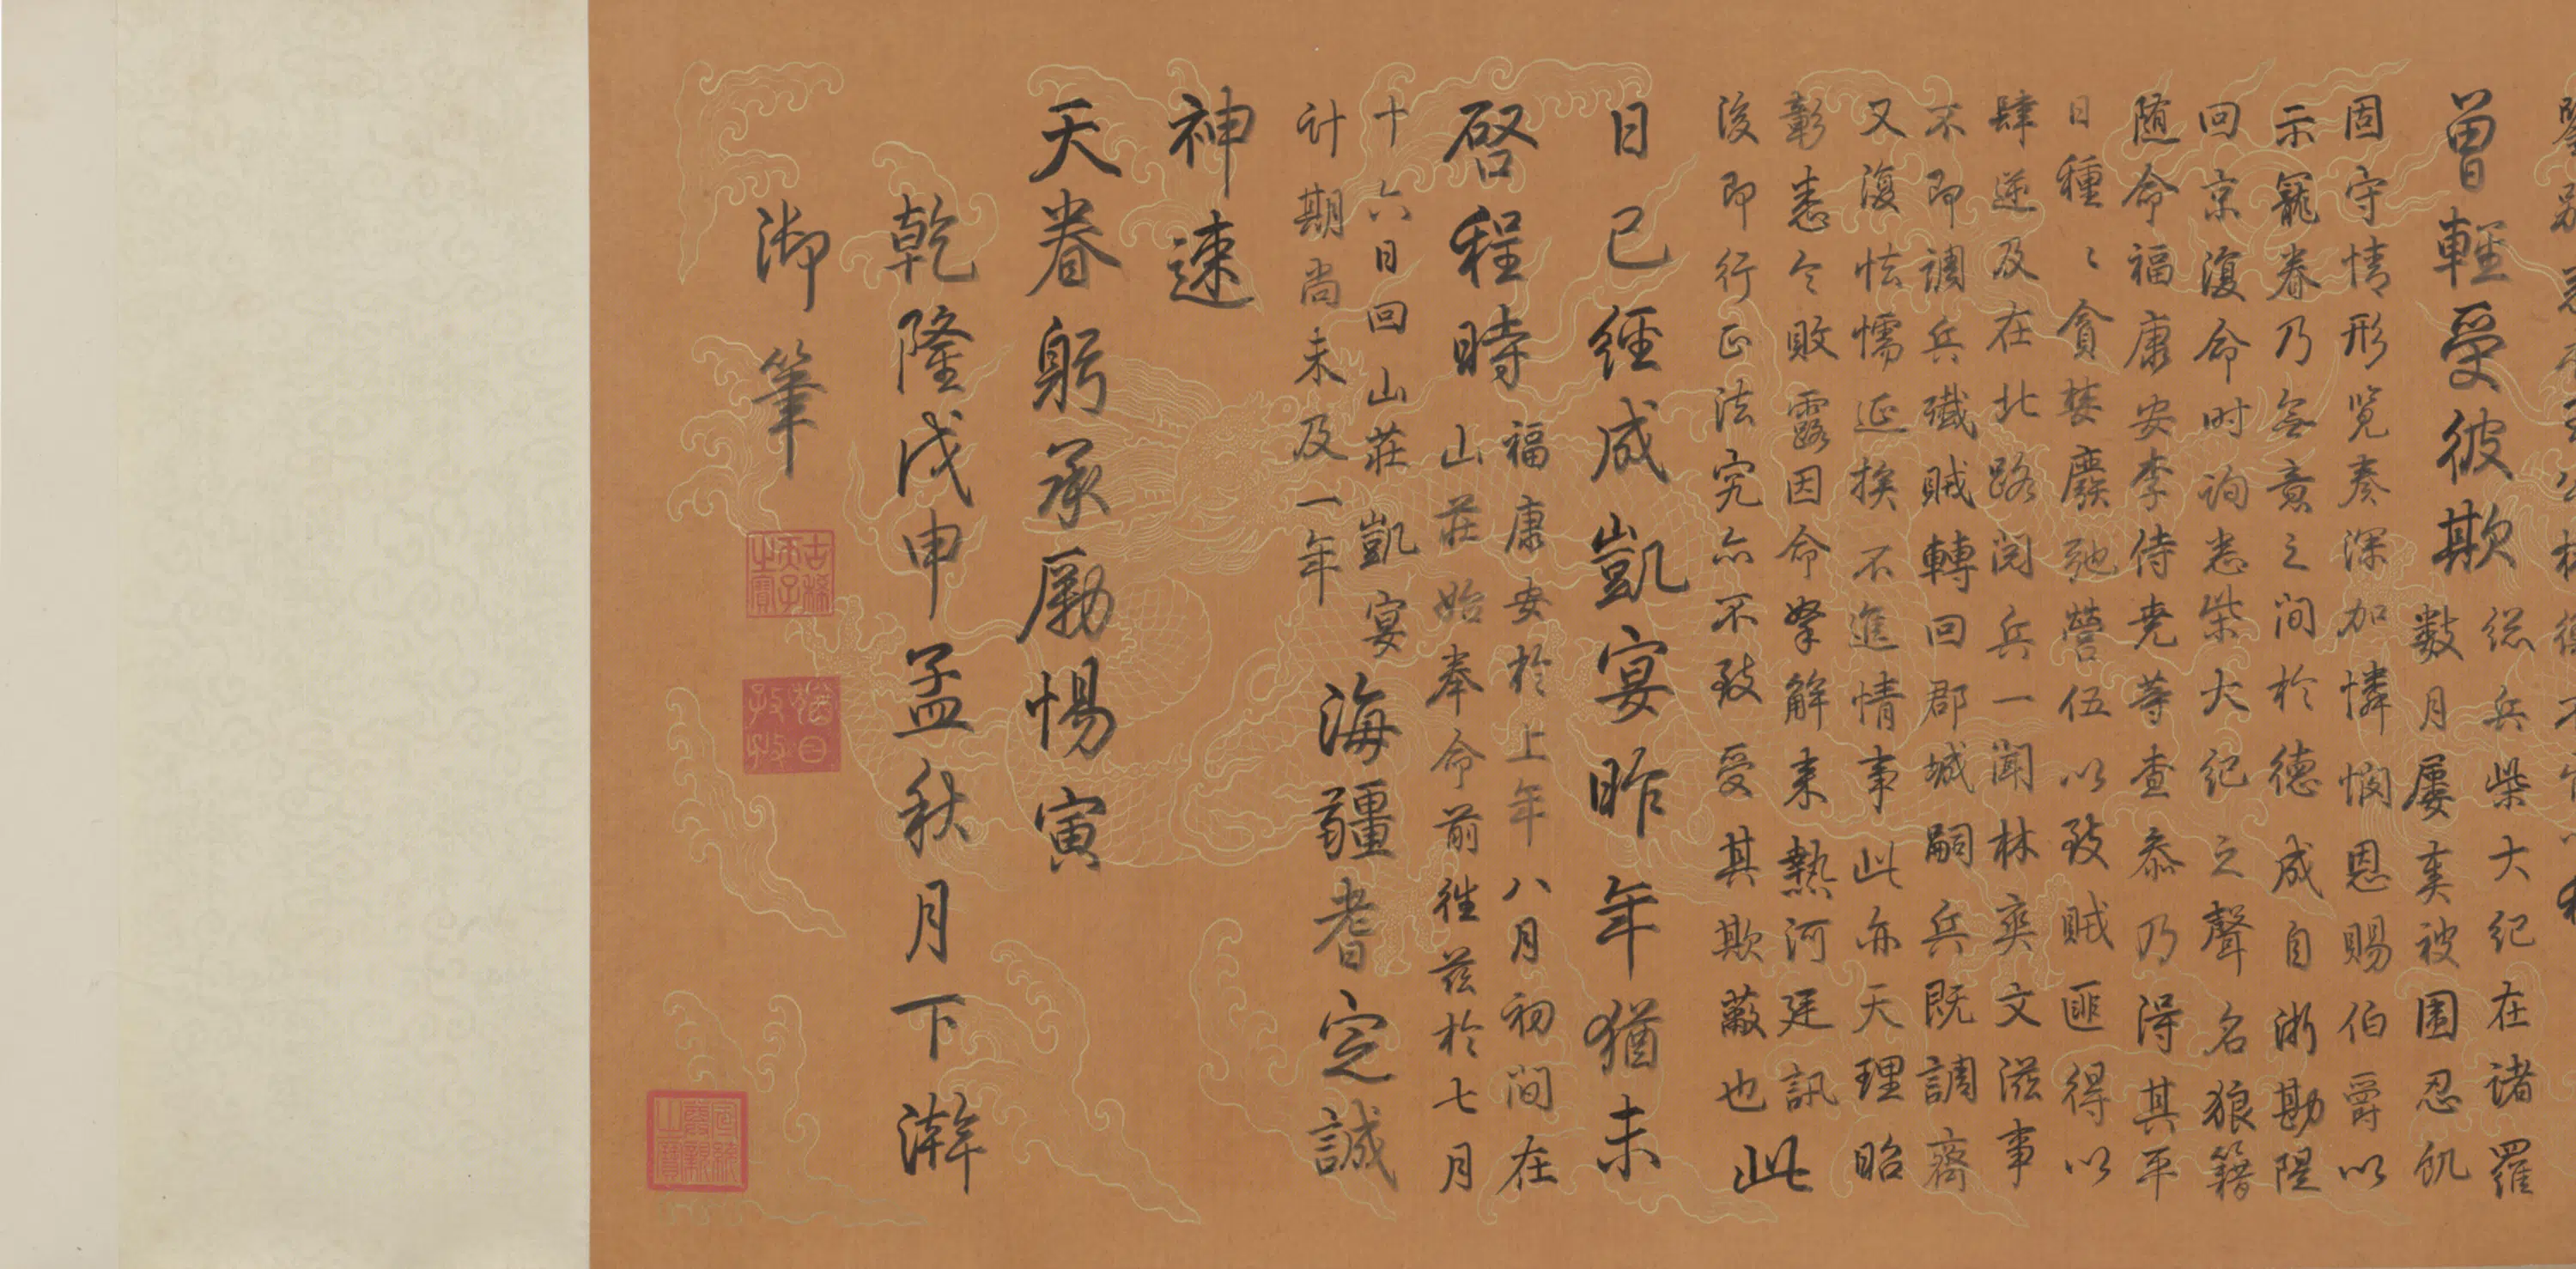 曾輕受彼欺
總兵柴大紀在諸羅
數月屢奏被圍忍飢
固守情形覽奏深加憐憫恩賜伯爵以
示寵眷乃無意之間於德成自浙勘隄
回京復命时詢悉柴大紀之聲名狼籍
隨命福康安李侍堯等查叅乃得其平
日種〻貪婪廢弛營伍以致賊匪得以
肆逆及在北路閱兵一聞林爽文滋事
不即調兵殲賊轉回郡城嗣兵既調齊
又復怯懦延挨不進情事此亦天理昭
彰悉令敗露因命拏解来熱河廷訊
後即行正法究亦不致受其欺蔽也
此
日已經成凱宴昨年猶未
啓程時
福康安於上年八月初間在
山莊始奉命前徃茲於七月
十六日回山莊凱宴
计期尚未及一年
海疆耆定誠
神速
天眷躬承勵惕寅
乾隆戊申孟秋月下澣
御筆
古稀天子之寶
猶日孜孜